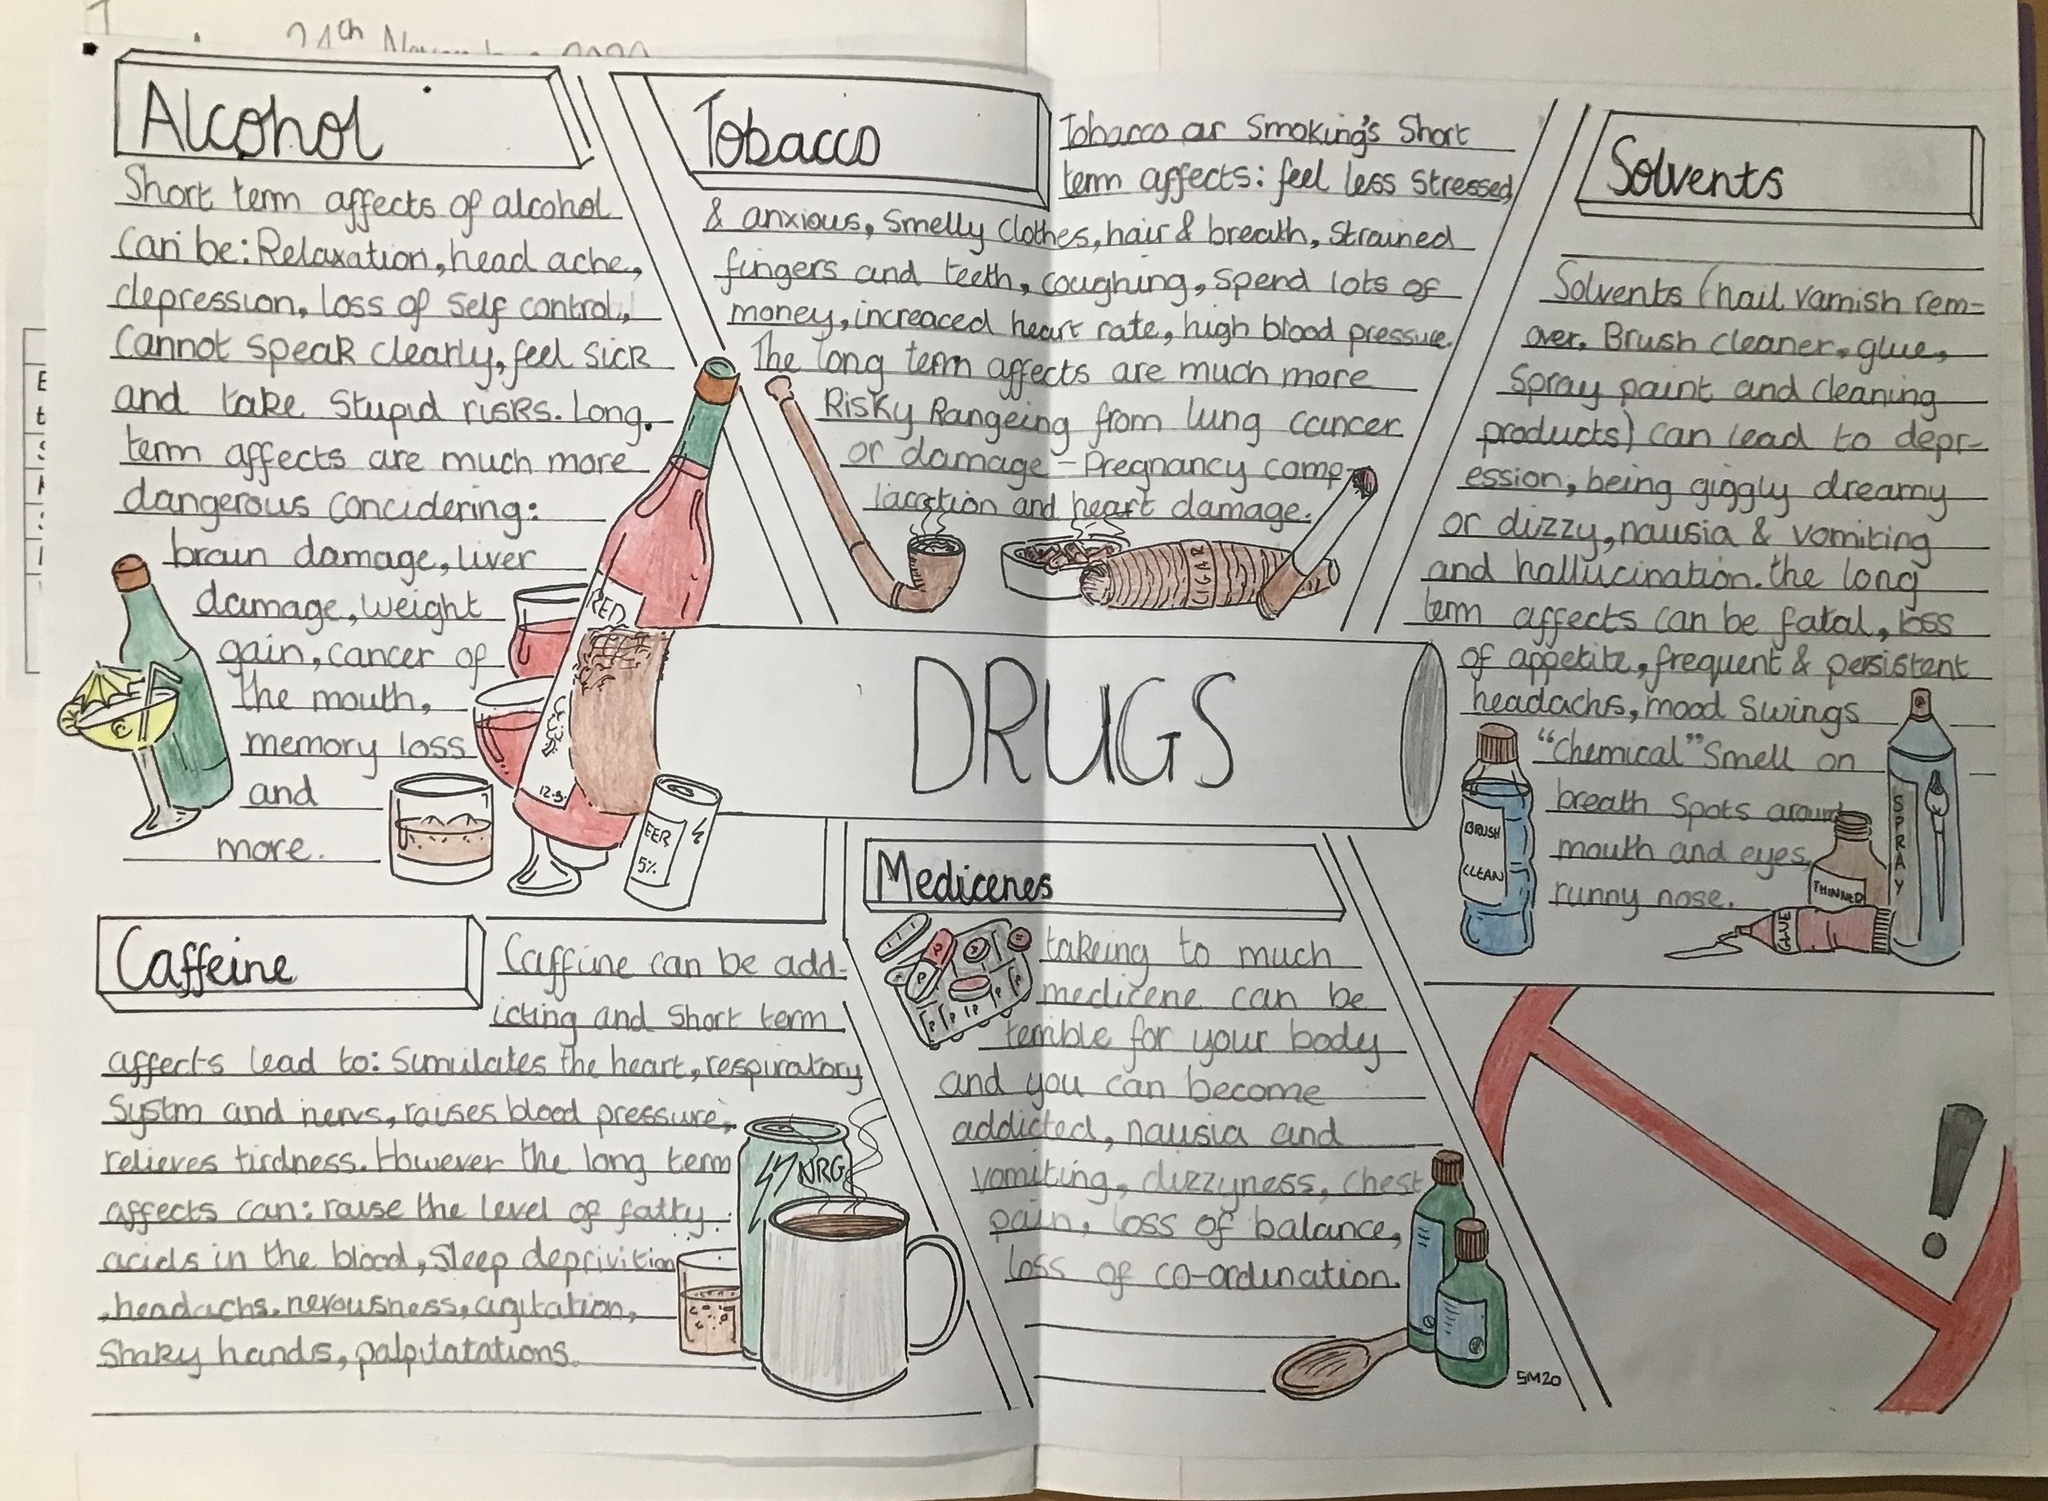 24th November 2020
Alcohol
Short term affects of alcohol
can be: Relaxation, head ache,
depression, loss of self control,
cannot speak clearly, feel sick
and take stupid risks. Long.
term affects are much more
dangerous concidering:
brain damage, liver
damage, weight
gain, cancer of
the mouth,
memory loss
and
more.
RED
12.5%
EER
5%
Tobacco
Tobacco or Smoking's Short
term affects: feel less stressed,
& anxious, smelly clothes, hair & breath, strained
fingers and teeth, coughing, spend lots of
money, increased heart rate, high blood pressure.
The long term affects are much more
Risky Rangeing from lung cancer
or damage - Pregnancy comp-
lacation and heart damage.
CIGAR
DRUGS
Solvents
Solvents (nail varnish rem-
over, Brush cleaner, glue,
spray paint and cleaning
products) can lead to depr-
ession, being giggly dreamy
or dizzy, nausia & vomiting
and hallucination. the long
term affects can be fatal, loss
of appetite, frequent & persistent
headachs, mood swings
"Chemical" Smell on
breath spots around
mouth and eyes,
runny nose.
BRUSH
CLEAN
SPRAY
THINNER
GLUE
Caffeine
Caffiine can be add-
icting and short term
affects lead to: Sumulates the heart, respiratory
systm and nervs, raises blood pressure,
relieves tirdness. However the long term
affects can: raise the level of fatty
acids in the blood, sleep deprivition
, headachs, nervousness, agitation,
shaky hands, palpitatations.
NRG
Medicenes
takeing to much
medicene can be
terrible for your body
and you can become
addicted, nausia and
vomiting, dizzyness, chest
pain, loss of balance,
loss of co-ordination.
SM20
!